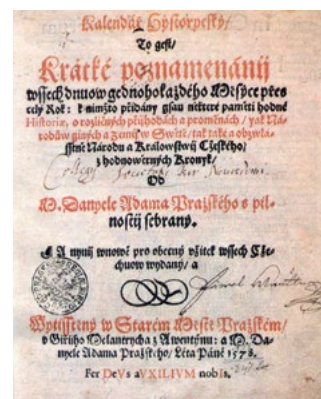 Kalendář Hystorycký/
To gest/
Krátké poznamenánij
wssech dnuow gednohokaždého Měsýce přes
celý Rok: k nimžto přidány gsau některé paměti hodné
Historiæ, o rozličných přijhodách a proměnách/ yak Ná-
rodůw giných a Zemij w Swětě/ tak také a obzwlá-
sstně Národu a Králowstwij Cžeského/
z hodnowěrných Kronyk/
Od
M. Danyele Adama Pražského s pil-
nostij sebraný.
A nynij wnowě pro obecný vžitek wssech Cže-
chuow wydaný/ a
Wytisstěný w Starém Městě Pražském/
v Giřijho Melantrycha z Awentýnu: a M. Da-
nyele Adama Pražského/ Léta Páně 1578.
Fer DeVs aVXILIVM nobIs.